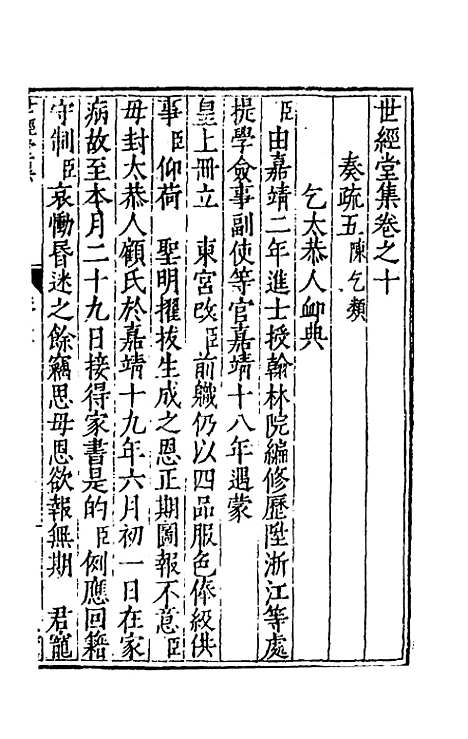 世經堂集卷之十
奏疏五 陳乞類
乞太恭人卹典
臣由嘉靖二年進士授翰林院編修歷陞浙江等處
提學僉事副使等官嘉靖十八年遇蒙
皇上冊立 東宮改臣前職仍以四品服色俸級供
事臣仰荷 聖明擢拔生成之恩正期圖報不意臣
母封太恭人顧氏於嘉靖十九年六月初一日在家
病故至本月二十九日接得家書是的 臣例應回籍
守制臣哀慟昏迷之餘竊思母恩欲報無期 君寵